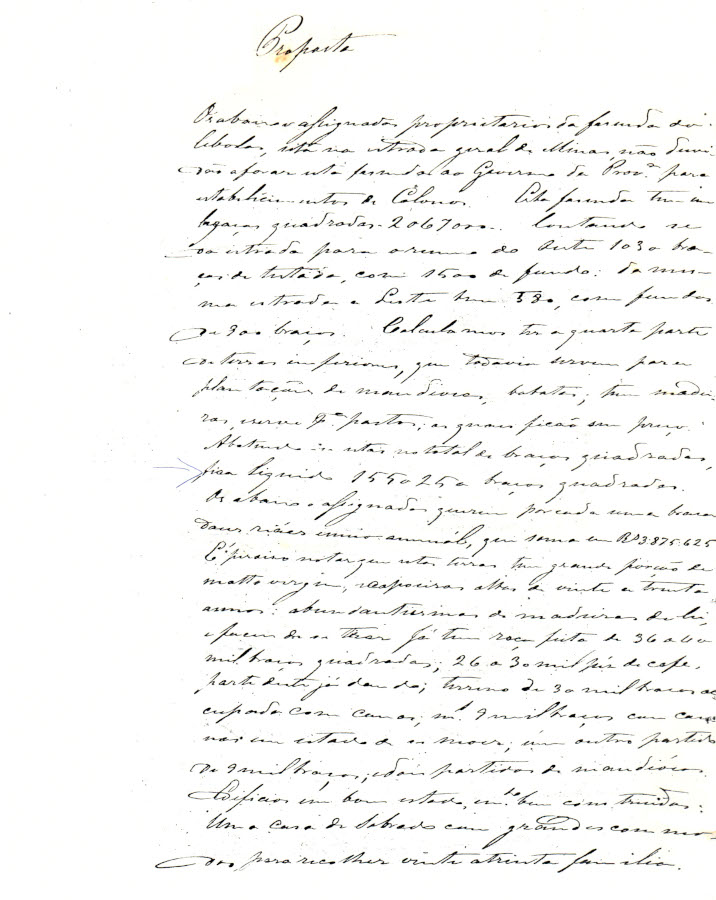 Proposta
Os abaixo assignados proprietarios da fasenda do
Cebolas, sita na estrada geral de Minas, não duvi-
dão aforar esta fasenda ao Governo da Prov.ª para
estabelicimentos de Colonos. Esta fasenda tem em
braças quadradas 2067000. Contando se
da estrada para o rumo do Oeste 1030 bra-
ças de testada, com 1500 de fundo: da mes-
ma estrada a Leste tem 580, com fundos
de 900 braças. Calculamos ter a quarta parte
de terras inferiores, que todavia servem para
plantações de mandiocas, batatas, tem madei-
ras, e serve p.ª pastos; as quaes ficão sem preço.
Abatendo se estas no total de braças quadradas,
fica liquido 1550250 braças quadradas.
Os abaixo assignados querem por cada uma braça
dous reis e meio annual, que soma em Rs 3.875.625
É preciso notar que estas terras tem grande porção de
matto virgem, e capoeiras altas de vinte a trinta
annos: abundantissimas de madeiras de lei,
Já tem roça feita de 36 a 40
mil braças quadradas, 26 a 30 mil pés de cafe,
parte deste já dando; terreno de 30 mil braças oc-
cupada com canas, 9 mil braças com can-
nas em estado de se moer; um outro partido
de 9 mil braças, e dois partidos de mandiocas.
Edificios em bom estado, e m.to bem construidos:
Uma casa de Sobrado com grandes commo-
dos, para recolher vinte a trinta familia.